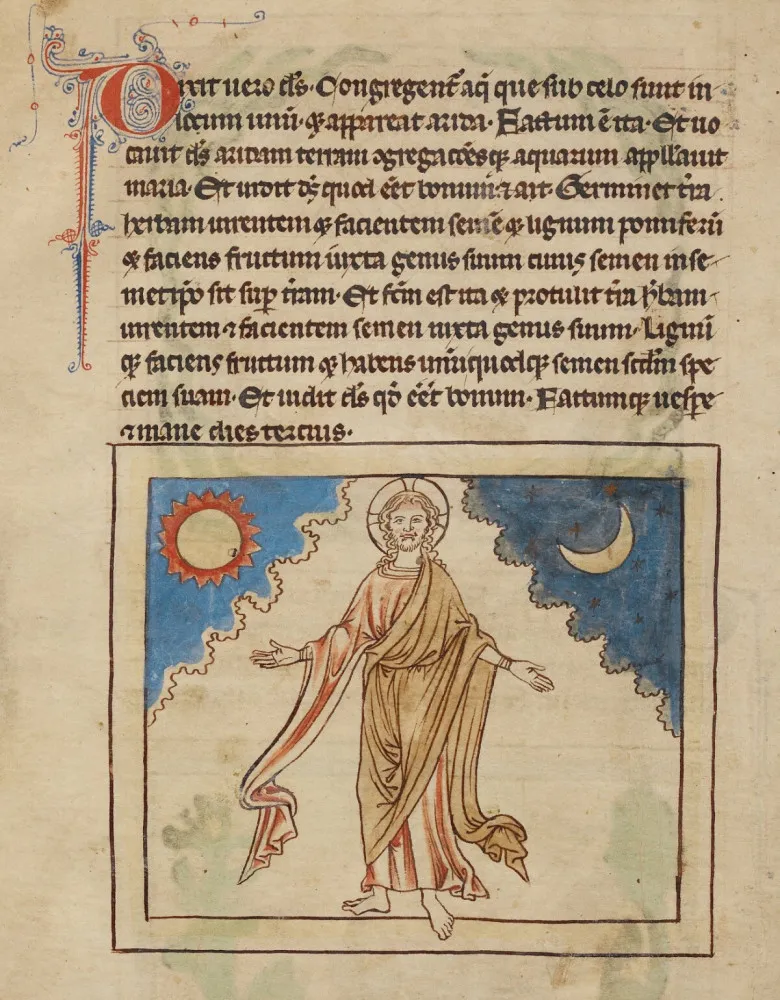 Dixit uero ds̄· Congregent᷑ aq̄ que sub celo sunt in
locum unū· ꝙ appareat arida· Factum ē ita· Et uo
cauit ds̄ aridam terram ꝯgregac̄ōesqꝫ aquarum appll̄auit
maria· Et uidit dȝ quod eēt bonum ⁊ ait· Germinet tr̄a
herbam uirentem ꝙ facientem semē ꝙ lignum pomiferū
ꝙ faciens fructum iuxta genus suum cuius semen in se
metip̄o sit sup̄ tr̄am· Et fc̄m est ita ꝙ protulit tr̄a hr̄bam
uirentem ⁊ facientem semen iuxta genus suum· Lignū
qꝫ faciens fructum ꝙ habens unūquodqꝫ semen scd̄m spe
ciem suam· Et uidit ds̄ qd̄ eēt bonum· Factumqꝫ uesꝑe
⁊ mane dies tercius·